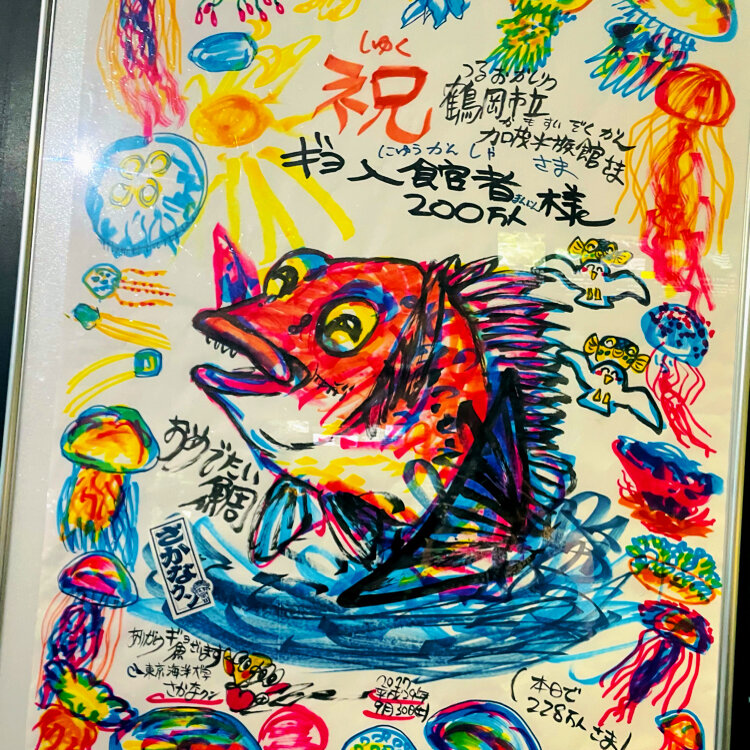 しゅく
祝
つるおかしりつ
鶴岡市立
かもすいぞくかん
加茂水族館さま
にゅうかんしゃ さま
ギョ入館者様
200万人
おめでたい
鯛
さかなクン
ありがとうギョざいます
東京海洋大学
さかなクン
2017
平成29年
9月30日(土)
(本日で
228万人さま!)